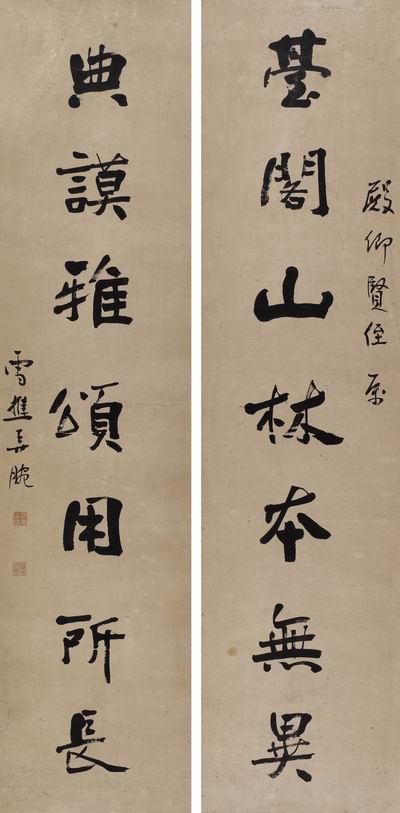 殿仰賢侄屬
臺閣山林本無異
典謨雅頌用所長
雪樵弄腕